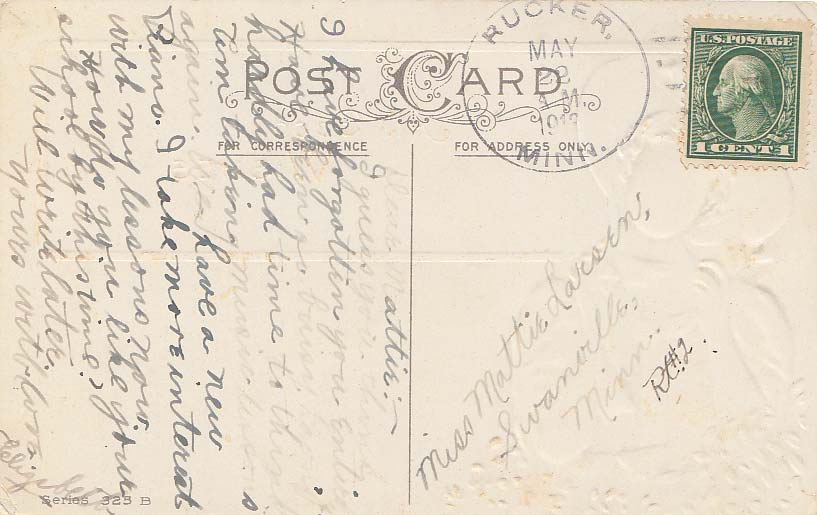 POST CARD
FOR CORRESPONDENCE
FOR ADDRESS ONLY
RUCKER,
MAY
A.M.
MINN.
U.S. POSTAGE
1 CENT 1
Dear Mattie:-
I guess you think
I have forgotten you entirely
Have been so busy
hardly had time to think
am taking music lessons
again.
have a new
Piano. I take more interest
with my lessons now
How do you like your
school by this time?
Will write later.
Yours with love
Miss Mattie Larsen,
Swanville,
Minn.
R#2.
Series 323 B